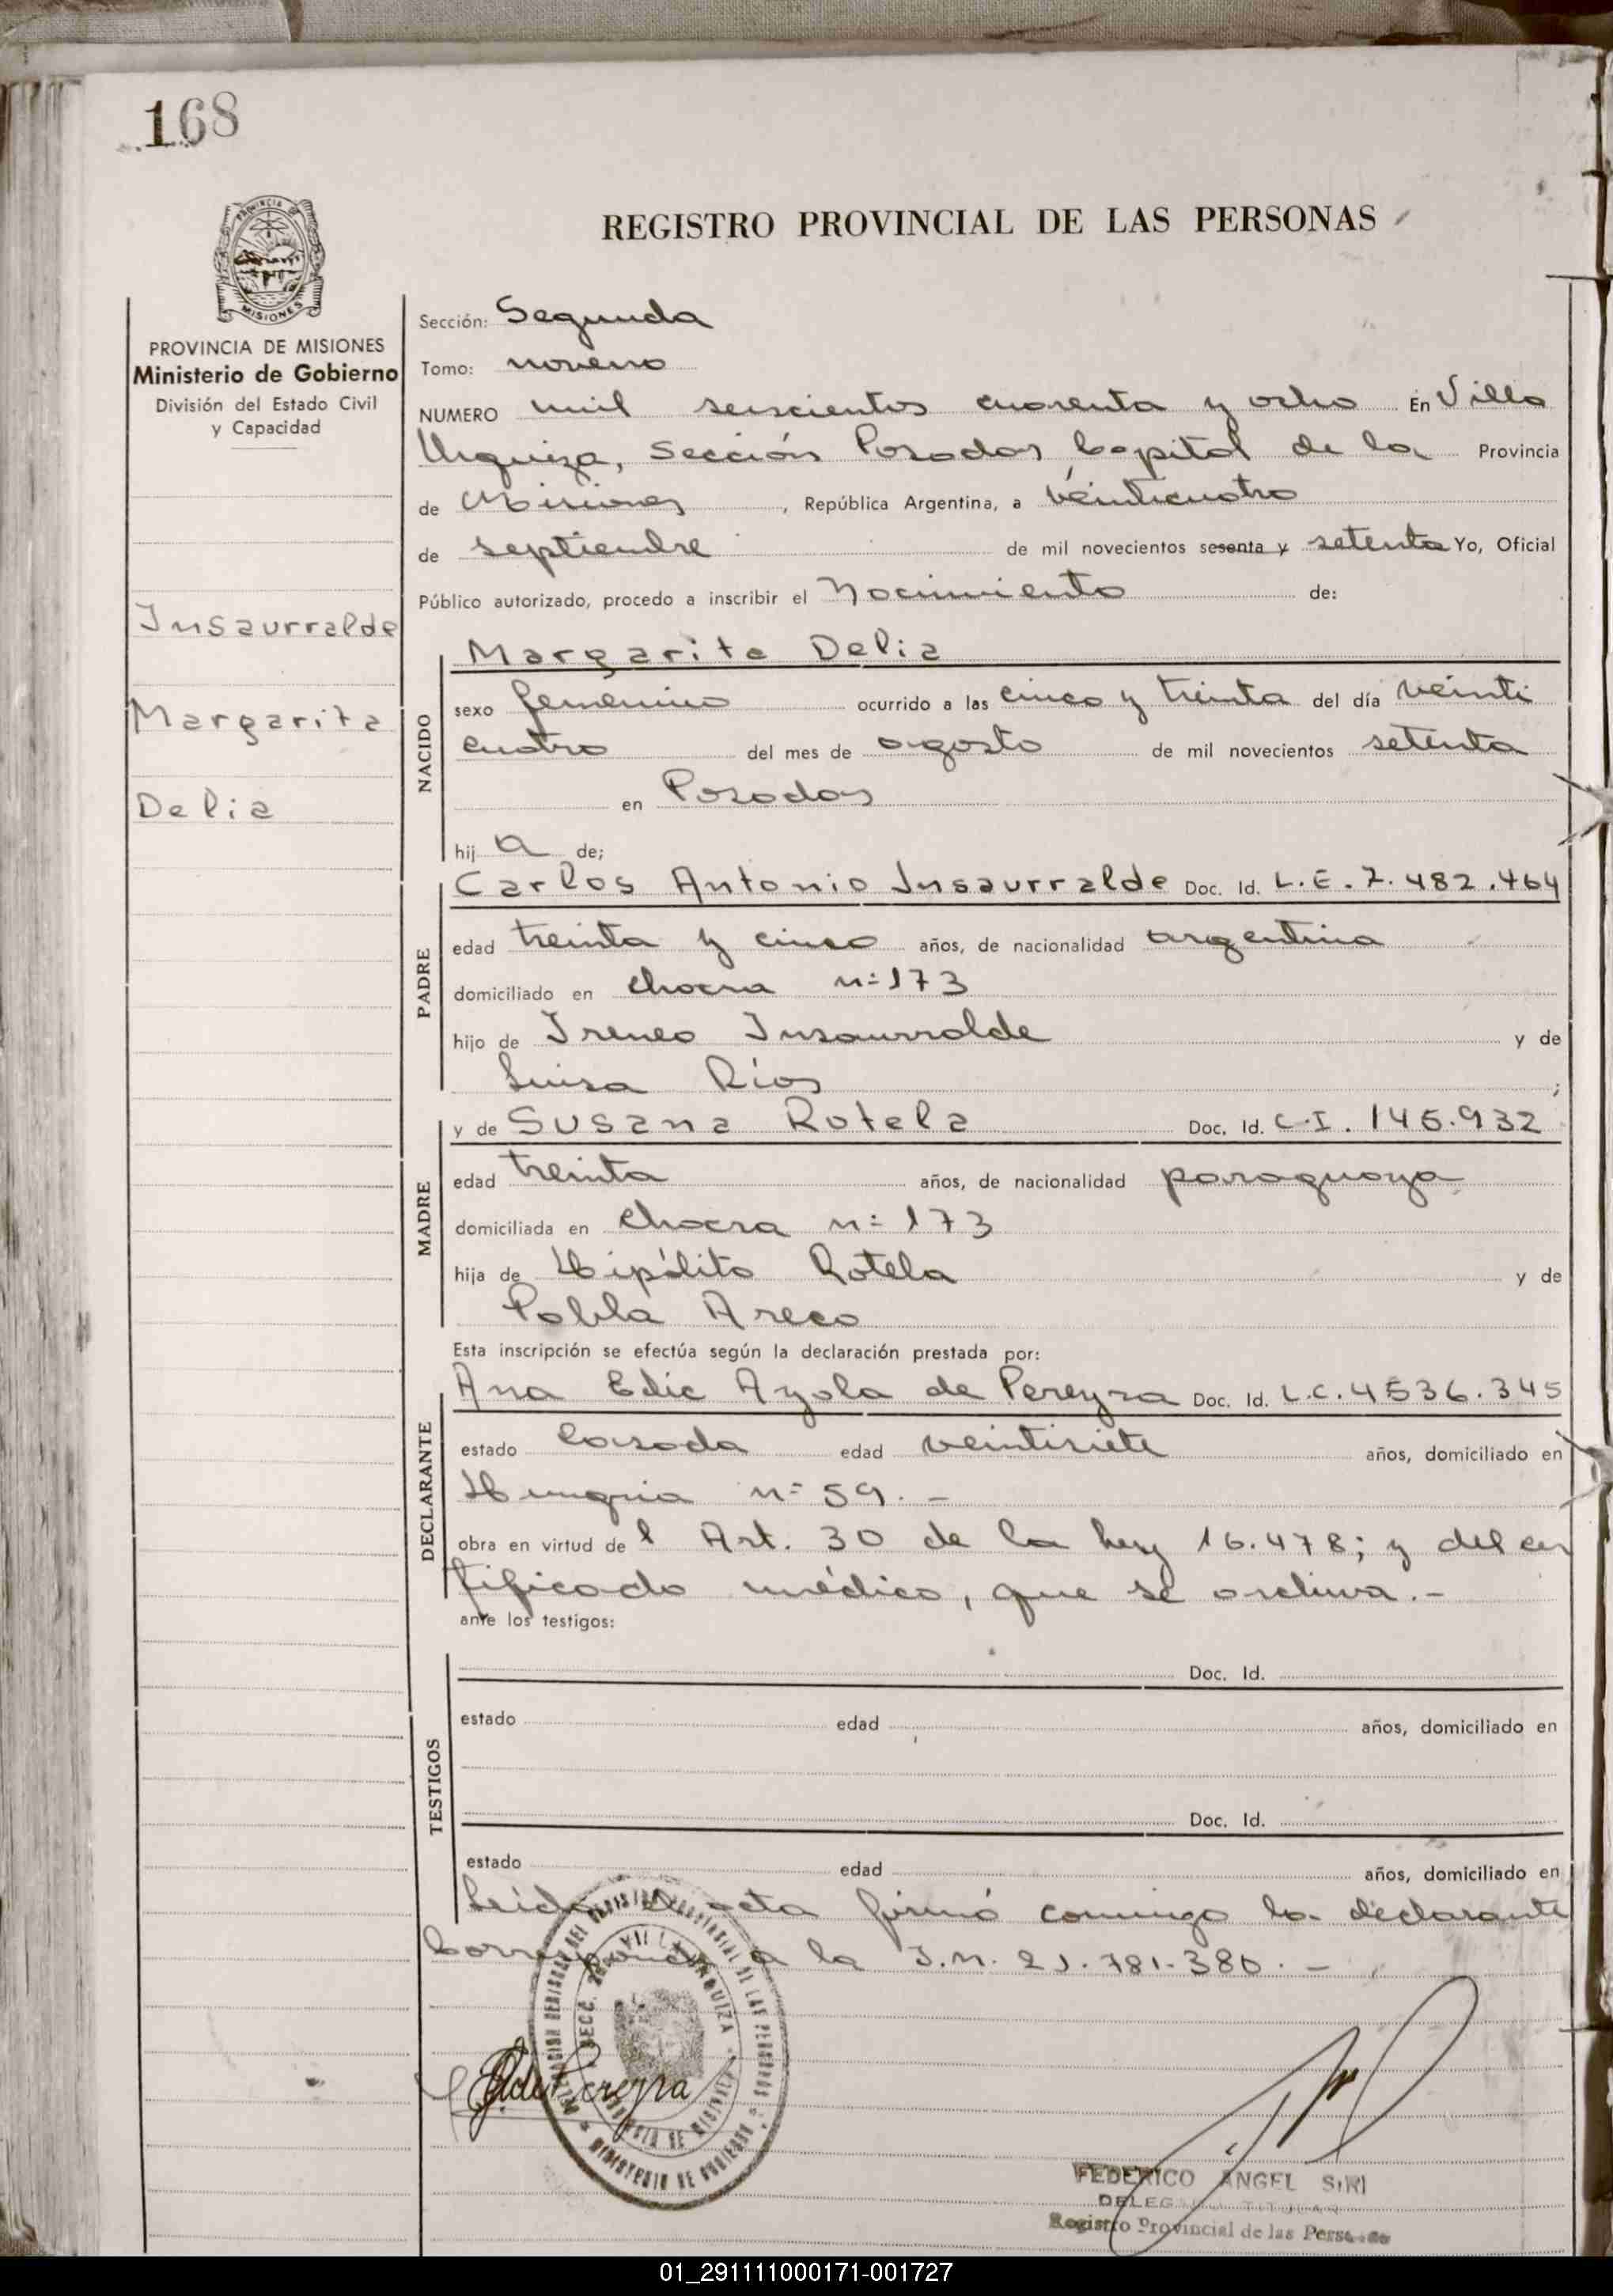 168
PROVINCIA DE MISIONES
Ministerio de Gobierno
División del Estado Civil
y Capacidad
Insaurralde
Margarita
Delia
REGISTRO PROVINCIAL DE LAS PERSONAS
Sección: Segunda
Tomo: noveno
NUMERO mil seiscientos cuarenta y ocho En Villa
Urquiza, Sección Posadas Capital de la Provincia
de Misiones, República Argentina, a veinticuatro
de septiembre de mil novecientos sesenta y setenta Yo, Oficial
Público autorizado, procedo a inscribir el Nacimiento de:
NACIDO
Margarita Delia
sexo femenino ocurrido a las cinco y treinta del día veinti
cuatro del mes de agosto de mil novecientos setenta
en Posadas
hija de;
PADRE
Carlos Antonio Insaurralde Doc. Id. L.E. 7.482.464
edad treinta y cinco años, de nacionalidad argentina
domiciliado en chacra nº 173
hijo de Ireneo Insaurralde y de
Luisa Ríos ;
MADRE
y de Susana Rotela Doc. Id. C.I. 145.932
edad treinta años, de nacionalidad paraguaya
domiciliada en chacra nº 173
hija de Hipólito Rotela y de
Pabla Areco
Esta inscripción se efectúa según la declaración prestada por:
DECLARANTE
Ana Ayala de Pereyra Doc. Id. L.C. 4536.345
estado casada edad veintisiete años, domiciliado en
Hungria nº 59. -
obra en virtud del Art. 30 de la ley 16.478; y del cer
tificado médico, que se archiva. -
ante los testigos:
TESTIGOS
Doc. Id.
estado edad años, domiciliado en
Doc. Id.
estado edad años, domiciliado en
Leída el acta firmó conmigo la declarante
Corresponde a la I.M. 21.781.380. -
VILLA URQUIZA
MINISTERIO DE GOBIERNO
de Pereyra
FEDERICO ANGEL SIRI
DELEGADO TITULAR
Registro Provincial de las Personas
01_291111000171-001727